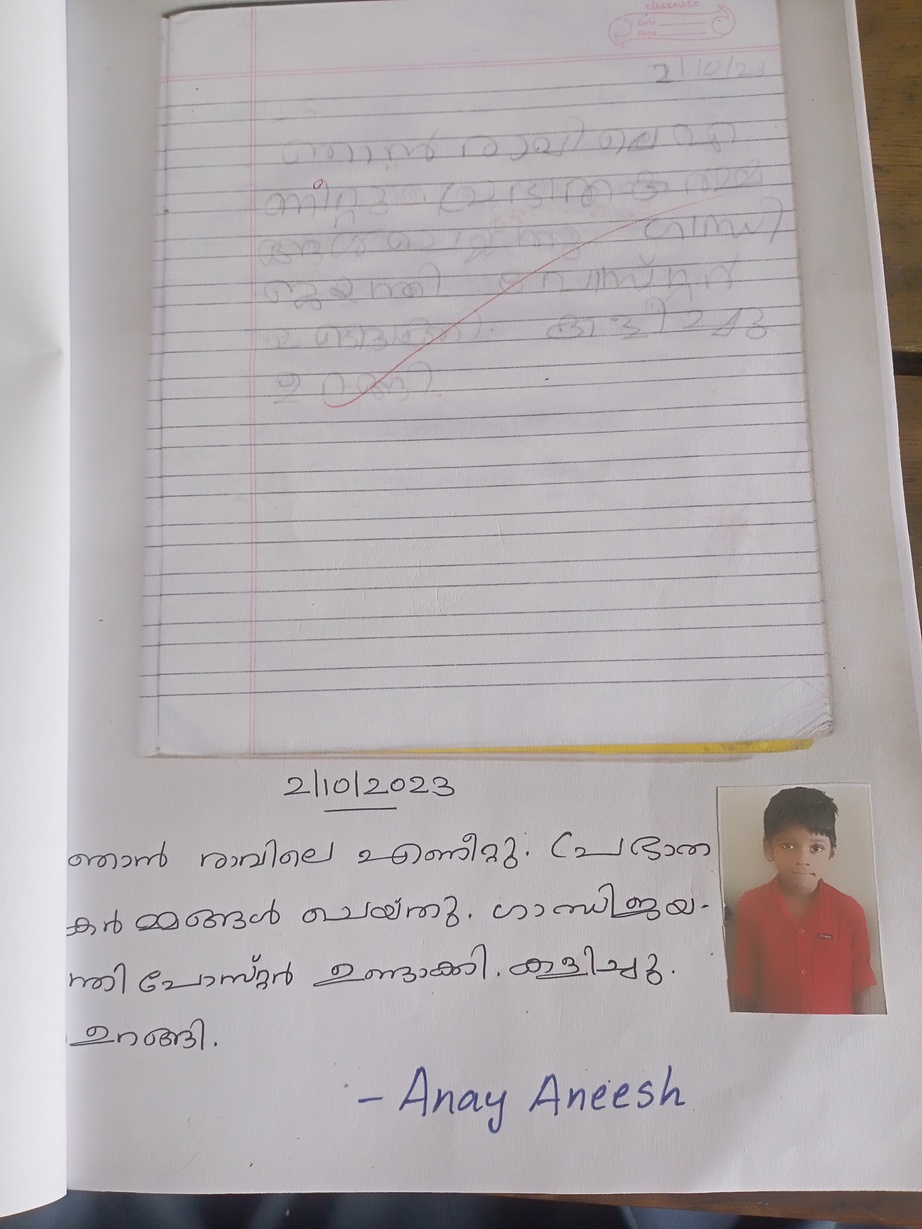 classmate
Date
Page
2/10/23
ഞാൻ രാവിലെ എ
ണീറ്റു. പ്രഭാതകർമ്മ
ജയന്തി പോസ്റ്റർ
ഉണ്ടാക്കി. കളിച്ചു
ഉറങ്ങി.
2/10/2023
ഞാൻ രാവിലെ എണീറ്റു. പ്രഭാത
കർമ്മങ്ങൾ ചെയ്തു. ഗാന്ധിജയ-
ന്തി പോസ്റ്റർ ഉണ്ടാക്കി. കളിച്ചു.
ഉറങ്ങി.
- Anay Aneesh